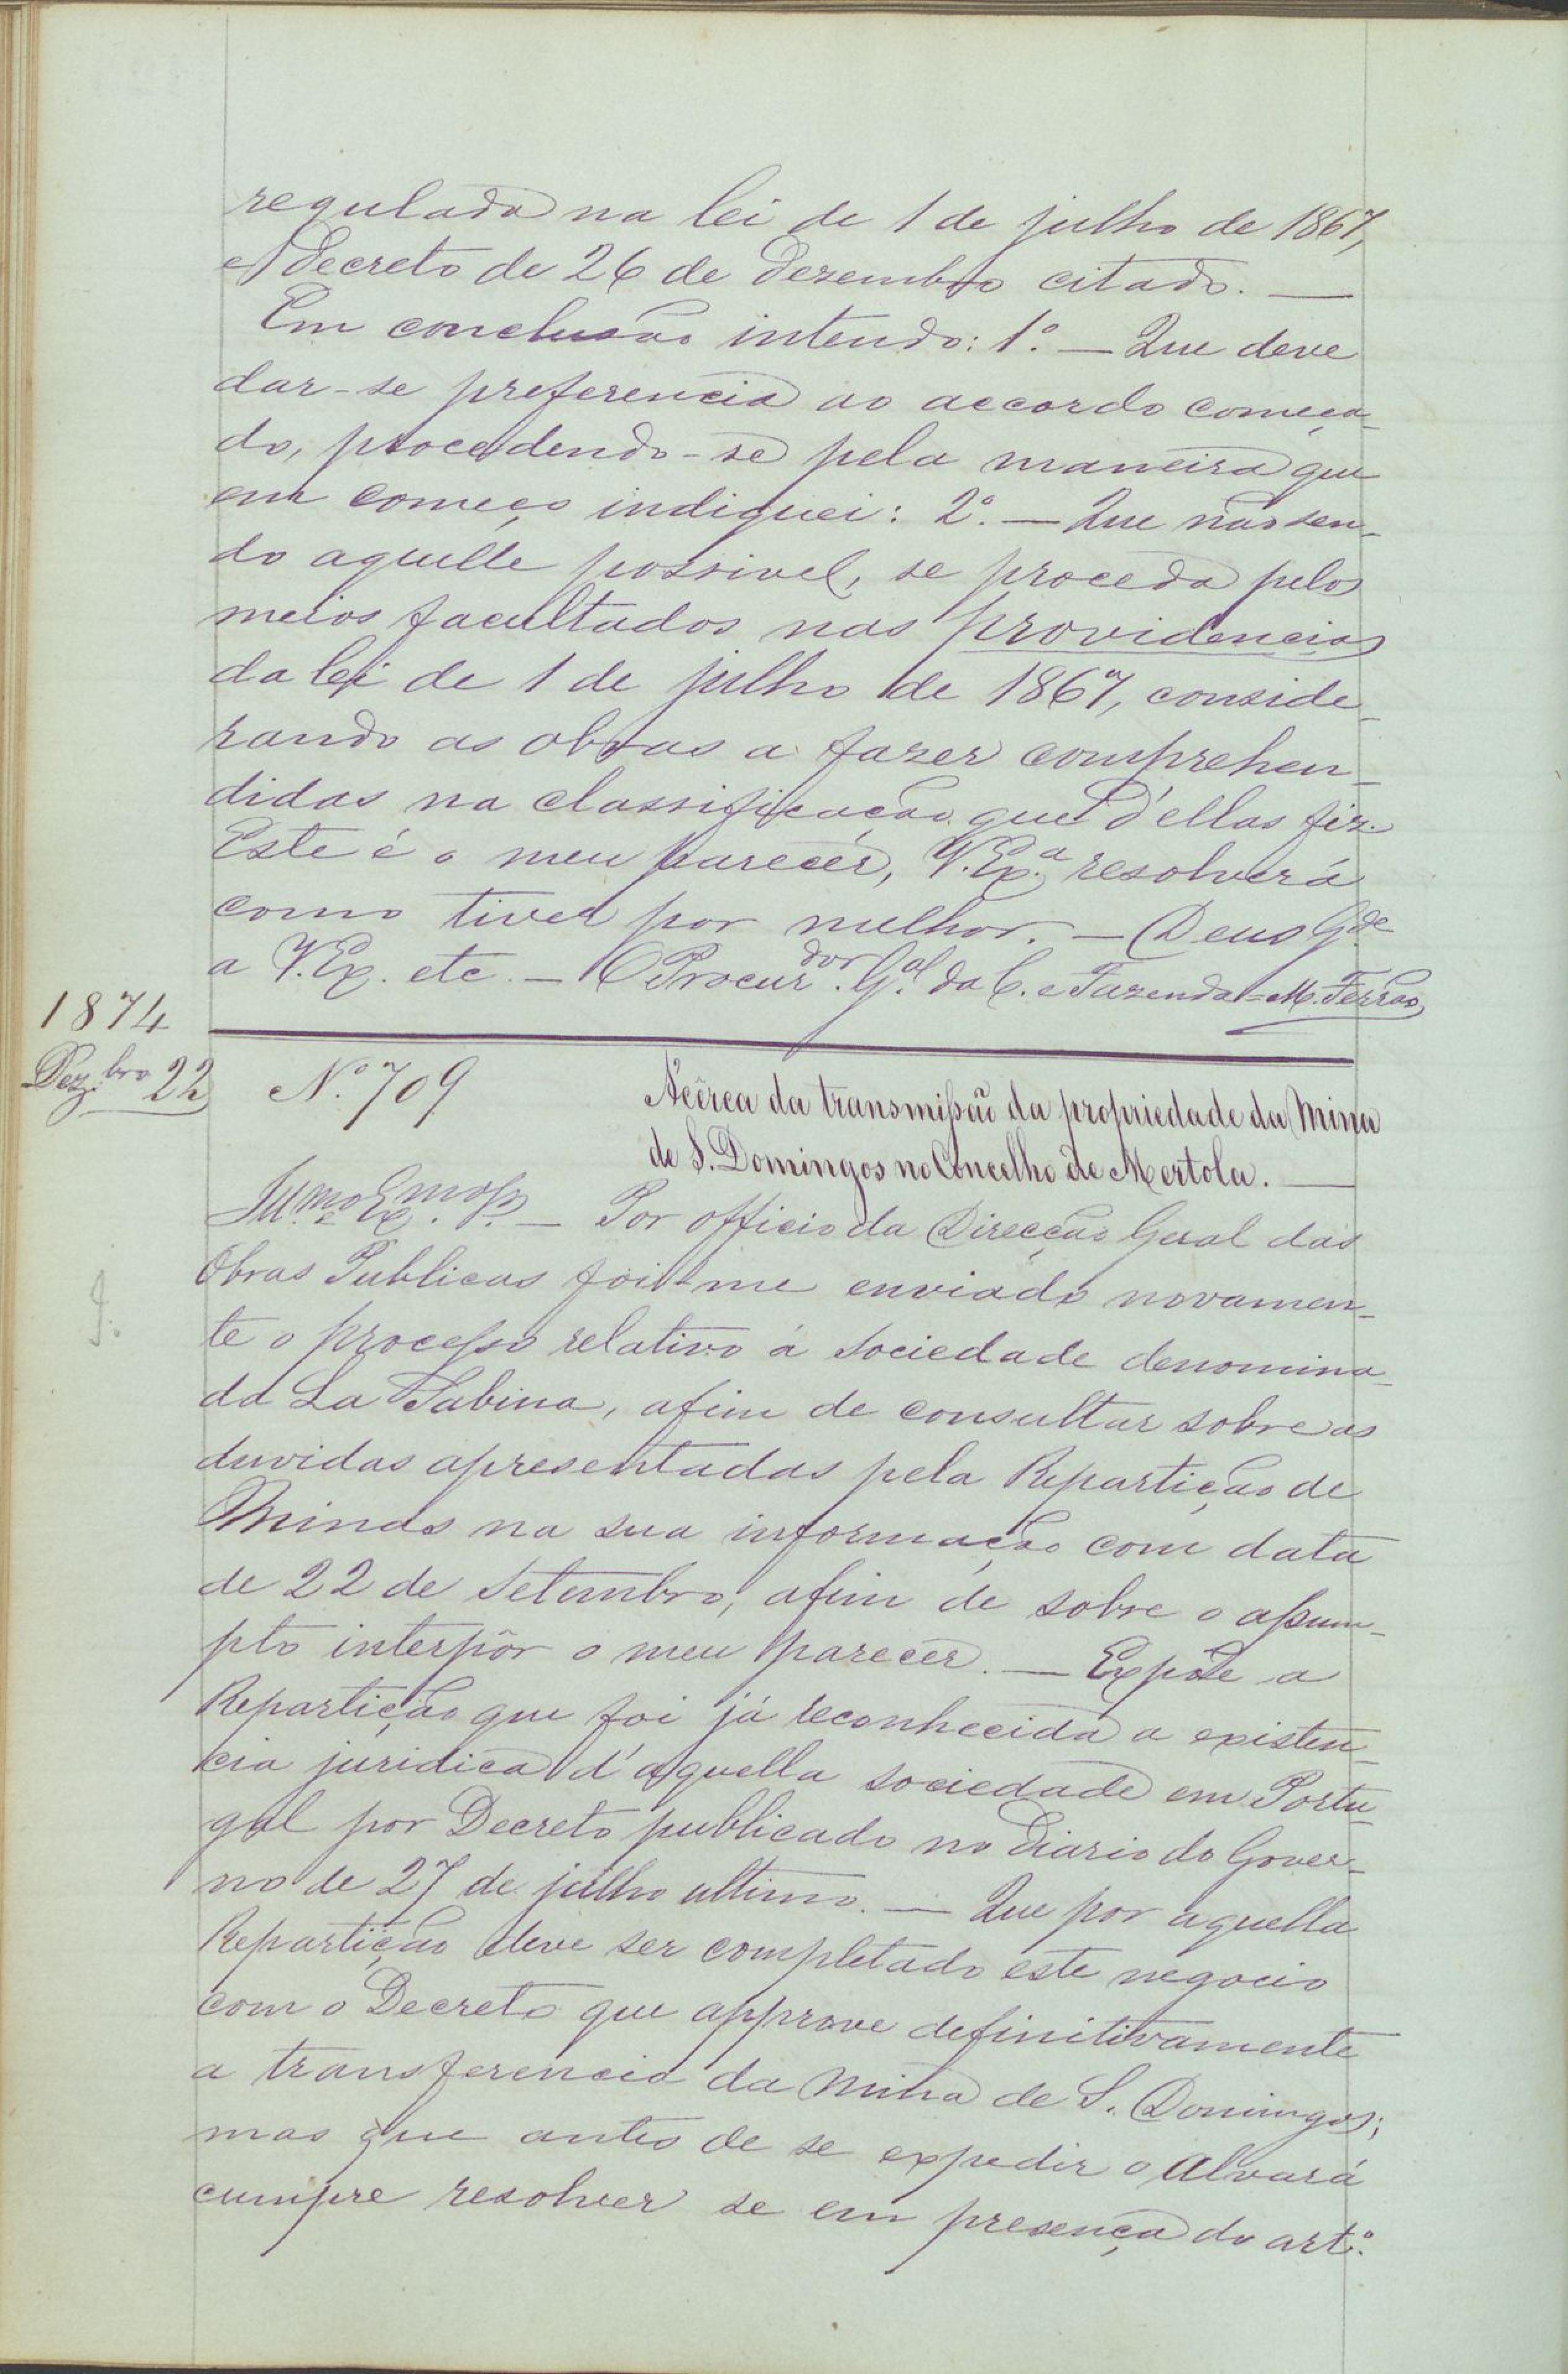 regulada na lei de 1 de julho de 1867,
e decreto de 26 de dezembro citado. —
Em conclusão intendo: 1.º — Que deve
dar-se preferencia ao accordo começa-
do, procedendo-se pela maneira que
em começo indiquei: 2.º — Que não sen-
do aquelle possivel, se proceda pelos
meios facultados nas providencias
da lei de 1 de julho de 1867, conside-
rando as obras a fazer comprehen-
didas na classificação que d'ellas fiz.
Este é o meu parecer, V. Ex.ª resolverá
como tiver por melhor. — Deus G.de
a V. Ex. etc. — O Procur.dor G.al da C. e Fazenda = M. Ferrão
1874
Dez.bro 22
N.º 709
Ácêrca da transmissão da propriedade da Mina
de S. Domingos no Concelho de Mertola. —
Ill.mo e Ex.mo Sr. — Por officio da Direcção Geral das
Obras Publicas foi-me enviado novamen-
te o processo relativo á Sociedade denomina-
da La Sabina, afim de consultar sobre as
duvidas apresentadas pela Repartição de
Minas na sua informação com data
de 22 de Setembro, afim de sobre o assum-
pto interpôr o meu parecer. — Expõe a
Repartição que foi já reconhecida a existen-
cia juridica d'aquella sociedade em Portu-
gal por Decreto publicado no Diario do Gover-
no de 27 de julho ultimo. — Que por aquella
Repartição deve ser completado este negocio
com o Decreto que approve definitivamente
a transferencia da mina de S. Domingos;
mas que antes de se expedir o Alvará
cumpre resolver se em presença do art.º